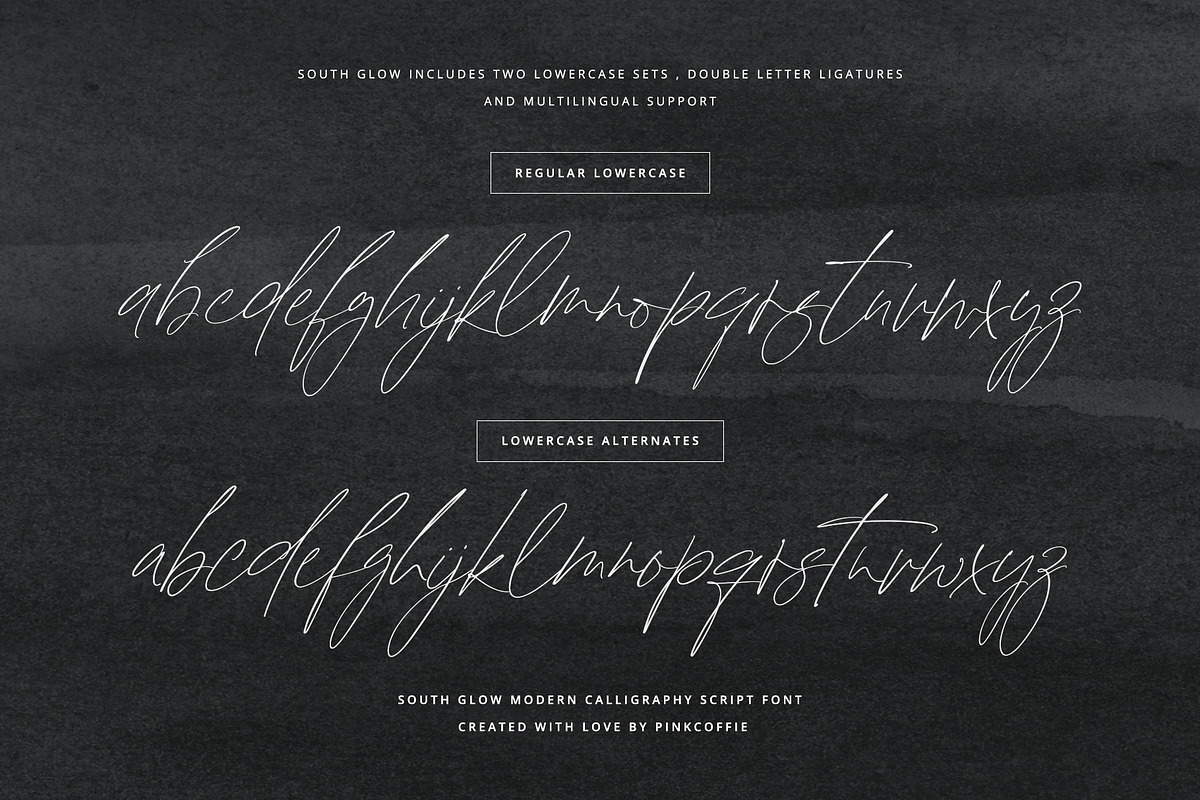 SOUTH GLOW INCLUDES TWO LOWERCASE SETS , DOUBLE LETTER LIGATURES
AND MULTILINGUAL SUPPORT
REGULAR LOWERCASE
abcdefghijklmnopqrstuvwxyz
LOWERCASE ALTERNATES
abcdefghijklmnopqrstuvwxyz
SOUTH GLOW MODERN CALLIGRAPHY SCRIPT FONT
CREATED WITH LOVE BY PINKCOFFIE